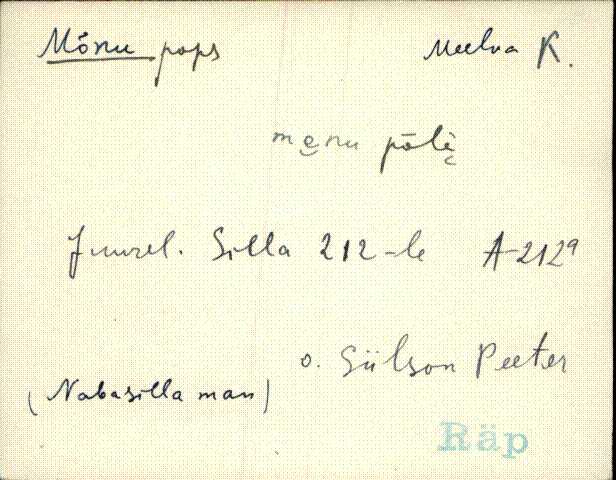 Mõnu pops Meelva K.
me̮nu pōlè̮
Juurel. Silla 212-le A-212ª
o. Sülson Peeter
(Nabasilla man)
Räp